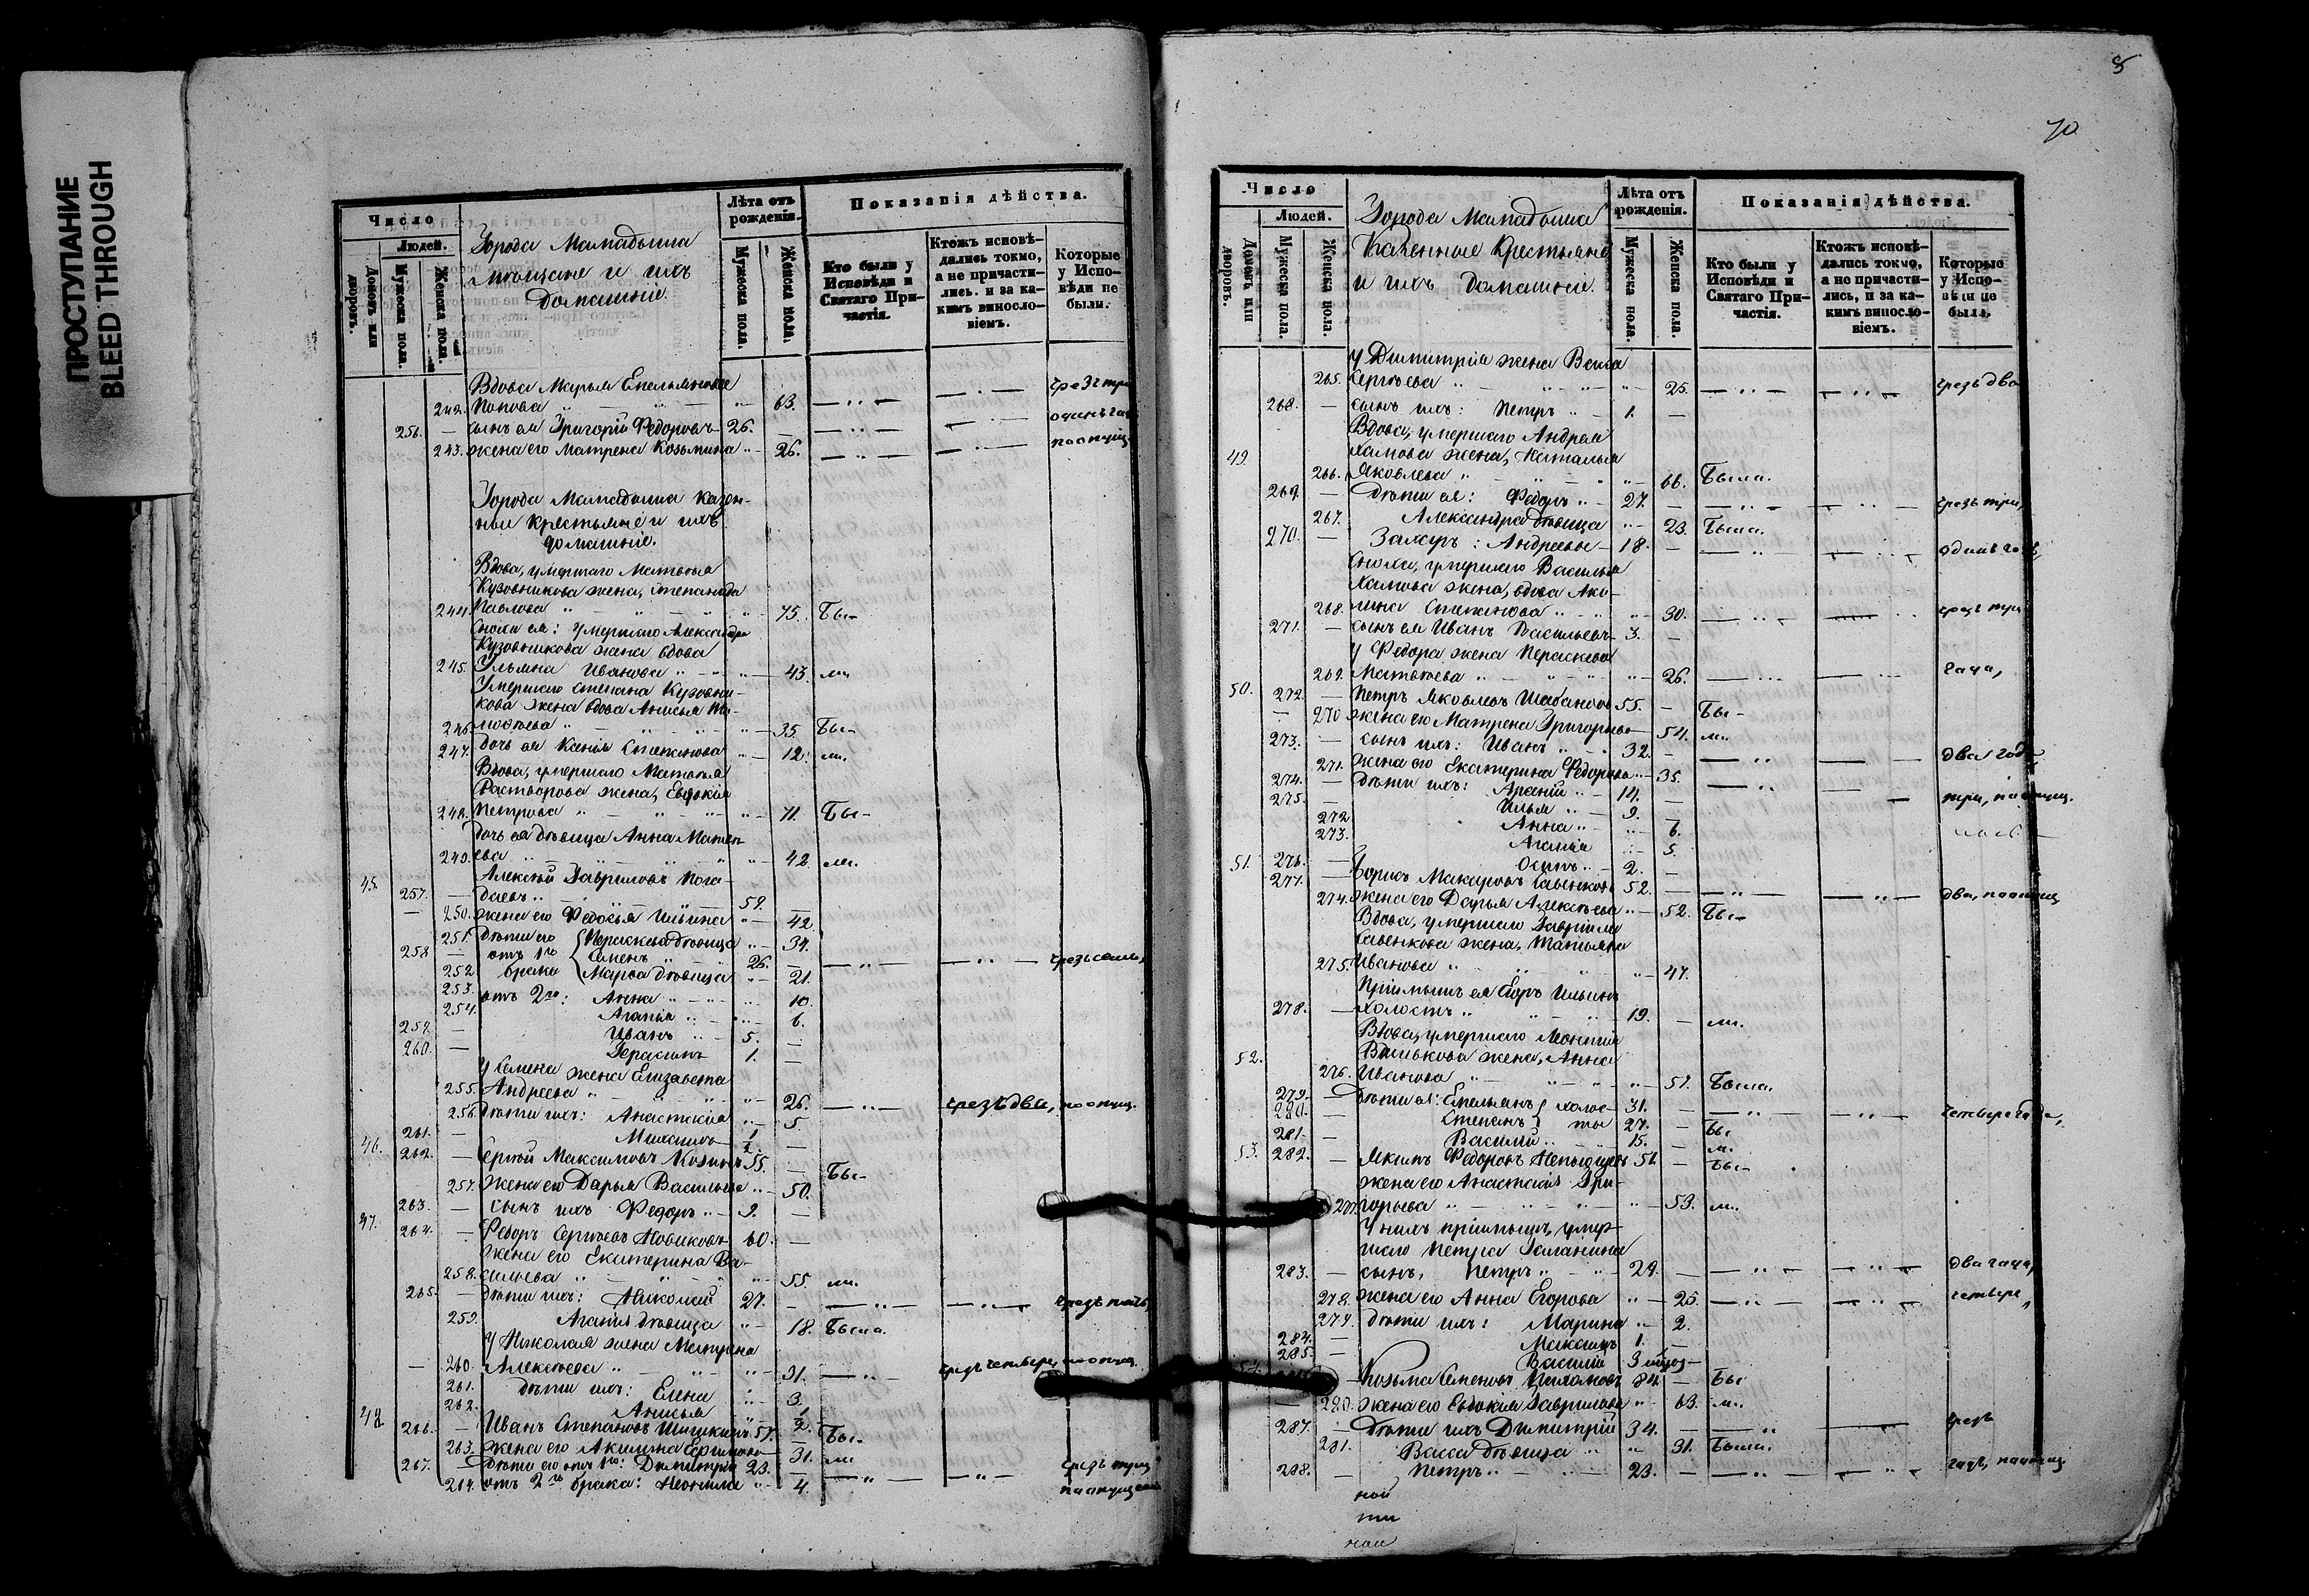 ПРОСТУПАНИЕ
BLEED THROUGH
Число
Людей.
Домовъ или дворовъ.
Мужеска пола.
Женска пола.
Города Мамадыша
мѣщане и ихъ
домашніе.
Лѣта отъ рожденія.
Мужеска пола.
Женска пола.
Показанія дѣйства.
Кто были у Исповѣди и Святаго Причастія.
Ктожъ исповѣдались токмо, а не причастились, и за какимъ винословіемъ.
Которые у Исповѣди не были.
Вдова Марья Емельянова
242. Попова 63. чрезъ три
256. сынъ ея Григорій Федоровъ 26. одинъ
243. жена его Матрена Козьмина 26.
Города Мамадыша казен-
ные крестьяне и ихъ
домашніе.
Вдова, умершаго Матвѣя
Кузовникова жена, Степанида
244. Павлова 75. Бы-
Сноха ея: умершаго Александра
Кузовникова жена вдова
245. Ульяна Иванова 43. ли.
Умершаго Степана Кузовни-
кова жена вдова Анисья Ти-
246. мофѣева 35. Бы-
247. дочь ея Ксенія Степанова 12. ли.
Вдова, умершаго Матвѣя
Растворова жена, Евдокія
248. Петрова 71. Бы-
Дочь ея дѣвица Анна Матвѣ-
249. ева 42. ли.
45. Алексѣй Гавриловъ Пога-
257. даевъ 59.
250. жена его Федосья Ильина 42.
251. дѣти его Параскева дѣвица 34.
258. отъ 1го Семенъ 26.
252. брака Марѳа дѣвица 21.
253. отъ 2го: Анна 10.
254. Агапія 6.
259. Иванъ 5.
260. Герасимъ 1.
У Семена жена Елизавета
255. Андреева 26. чрезъ два,
256. дѣти ихъ: Анастасія 5.
261. Михаилъ
46. 262. Сергѣй Максимовъ 55. Бы-
257. жена его Дарья Васильева 50.
263. сынъ ихъ Федоръ 9.
47. 264. Федоръ Сергѣевъ Новиковъ 60.
жена его Екатерина Ва-
258. сильева 55. ли.
265. дѣти ихъ: Николай 27. чрезъ пять,
259. Агапія дѣвица 18. Была.
У Николая жена Матрена
260. Алексѣева 31. чрезъ четыре,
261. дѣти ихъ: Елена 3.
262. Анисья
48. 266. Иванъ Степановъ Шишкинъ 57. Бы-
263. жена его Акилина 31. ли
267. Дѣти его отъ 1го: Димитрій 23. чрезъ три
264. отъ 2го брака: 4.
8
70
Число
Людей.
Домовъ или дворовъ.
Мужеска пола.
Женска пола.
Города Мамадыша
Казенные Крестьяне
и ихъ домашніе.
Лѣта отъ рожденія.
Мужеска пола.
Женска пола.
Показанія дѣйства.
Кто были у Исповѣди и Святаго Причастія.
Ктожъ исповѣдались токмо, а не причастились, и за какимъ винословіемъ.
Которые у Исповѣди не были.
У Димитрія жена Васса
265. Сергѣева 25. чрезъ два
268. сынъ ихъ: Петръ 1.
Вдова, умершаго Андрея
49. Хамова жена, Наталья
266. Яковлева 66. Была.
269. Дѣти ея: Федоръ 27. чрезъ три,
267. Александра дѣвица 23. Была.
270. Захаръ: Андреевы 18. одинъ годъ,
Сноха, умершаго Василья
Хамова жена, вдова Аки-
268. лина Степанова 30. чрезъ три
271. сынъ ея Иванъ Васильевъ 3.
У Федора жена Параскева
269. Матвѣева 26. года,
50. 272. Петръ Яковлевъ Шабановъ 55. Бы-
270. жена его Матрена Григорьева 54. ли.
273. сынъ ихъ: Иванъ 32. два года
271. жена его Екатерина Федорова 35.
274. дѣти ихъ: Арсеній 14.
275. Илья 9.
272. Анна 6.
273. Агапія 5.
276. Осипъ 2.
51. 277. Борисъ Макаровъ Савенковъ 52.
274. жена его Дарья Алексѣева 52. Бы-
Вдова, умершаго Гавріила
Савенкова жена, Татьяна
275. Иванова 47.
Пріемышъ ея Егоръ Ильинъ
278. холостъ 19. ли.
Вдова, умершаго Леонтія
52. жена, Анна
276. Иванова 51. Была.
279. Дѣти ея: Емельянъ холос- 31. четыре года,
280. Степанъ тые 27. Бы-
281. Василій 15. ли.
53. 282. Якимъ Федоровъ 51. Бы-
жена его Анастасія Гри-
277. горьева 53. ли.
У нихъ пріемышъ, умер-
шаго Петра Галанина
283. сынъ, Петръ 29. два года,
278. жена его Анна Егорова 25. четыре
279. дѣти ихъ: Марина 2.
284. Максимъ 1.
285. Василій
Козьма Семеновъ Бы-
280. жена его Евдокія Гаврилова 63. ли.
287. Дѣти ихъ Димитрій 34. чрезъ
281. Васса дѣвица 31. Была.
288. Петръ 23.